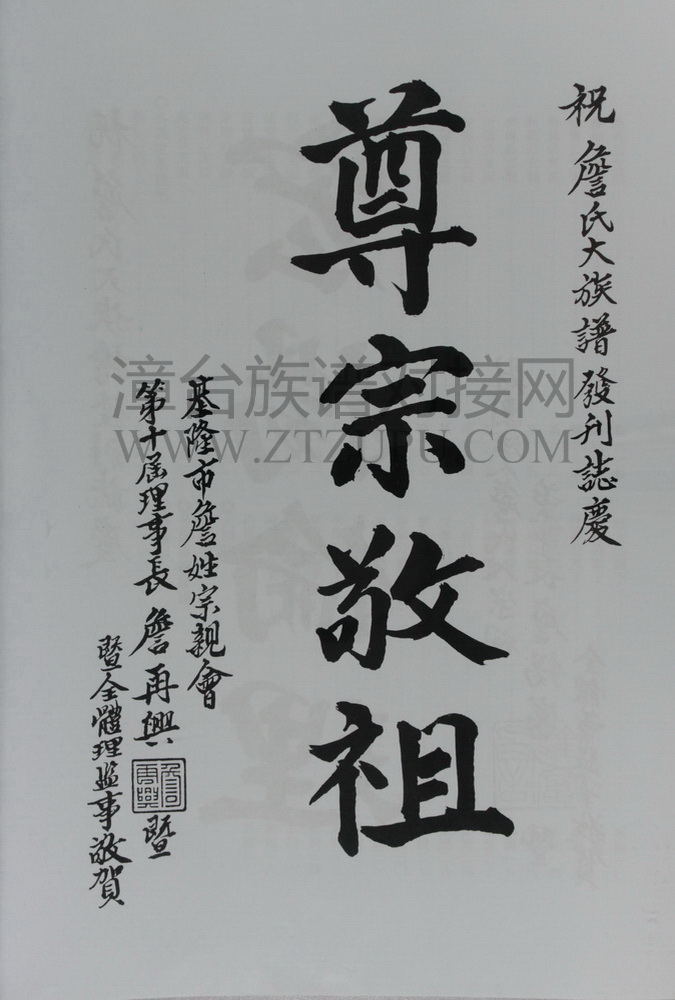 祝詹氏大族譜發刊誌慶
尊宗敬祖
基隆市詹姓宗親會
第十屆理事長詹再興暨
暨全體理監事敬賀
詹再興
漳台族谱对接网
WWW.ZTZUPU.COM